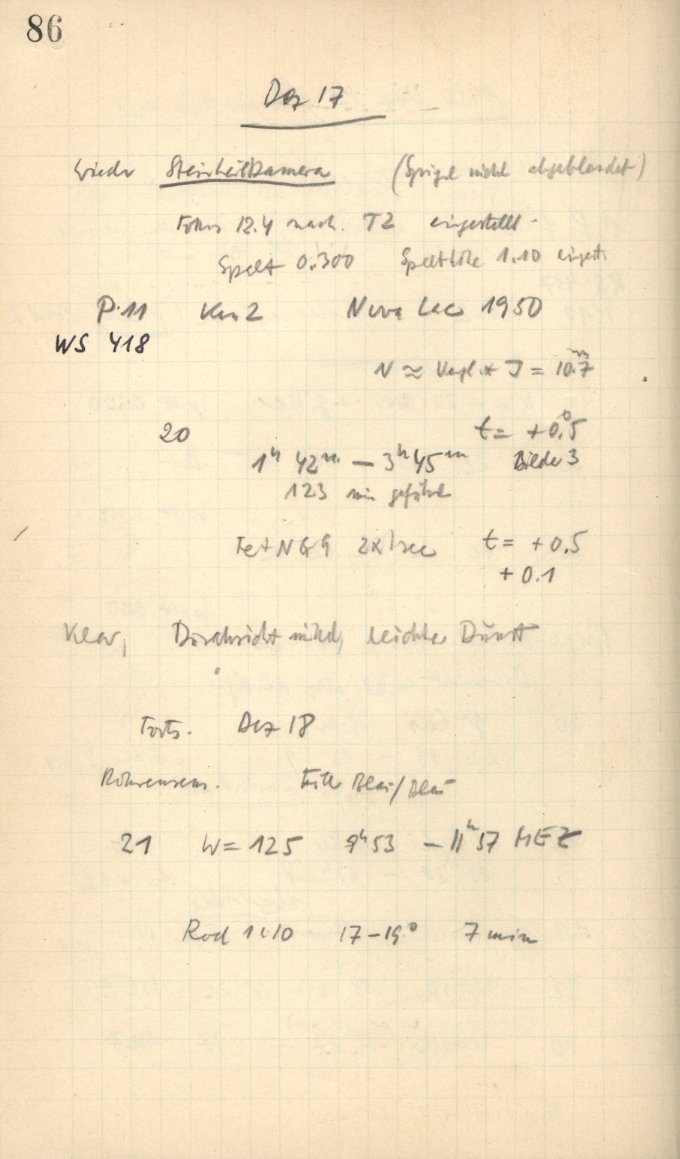 86
Dez 17
wieder Steinheilkamera (Spiegel nicht abgeblendet)
Fokus 12.4 nach T2 eingestellt
Spalt 0.300 Spalthöhe 1.10 eingest.
P.11 Nova Lac 1950
WS 418
N ≈ Vergl.* J = 10.ᵐ7
20 t = +0.°5
1ʰ 42ᵐ – 3ʰ 45ᵐ Bilder 3
123 min geführt
Fe + N G 9 2x1sec t = +0.5
+0.1
Klar, Durchsicht mittel, leichter Dunst
Forts. Dez 18
Filter Blau/Blau
21 W = 125 9ʰ53 – 11ʰ57 MEZ
Rod 1:10 17–19° 7 min